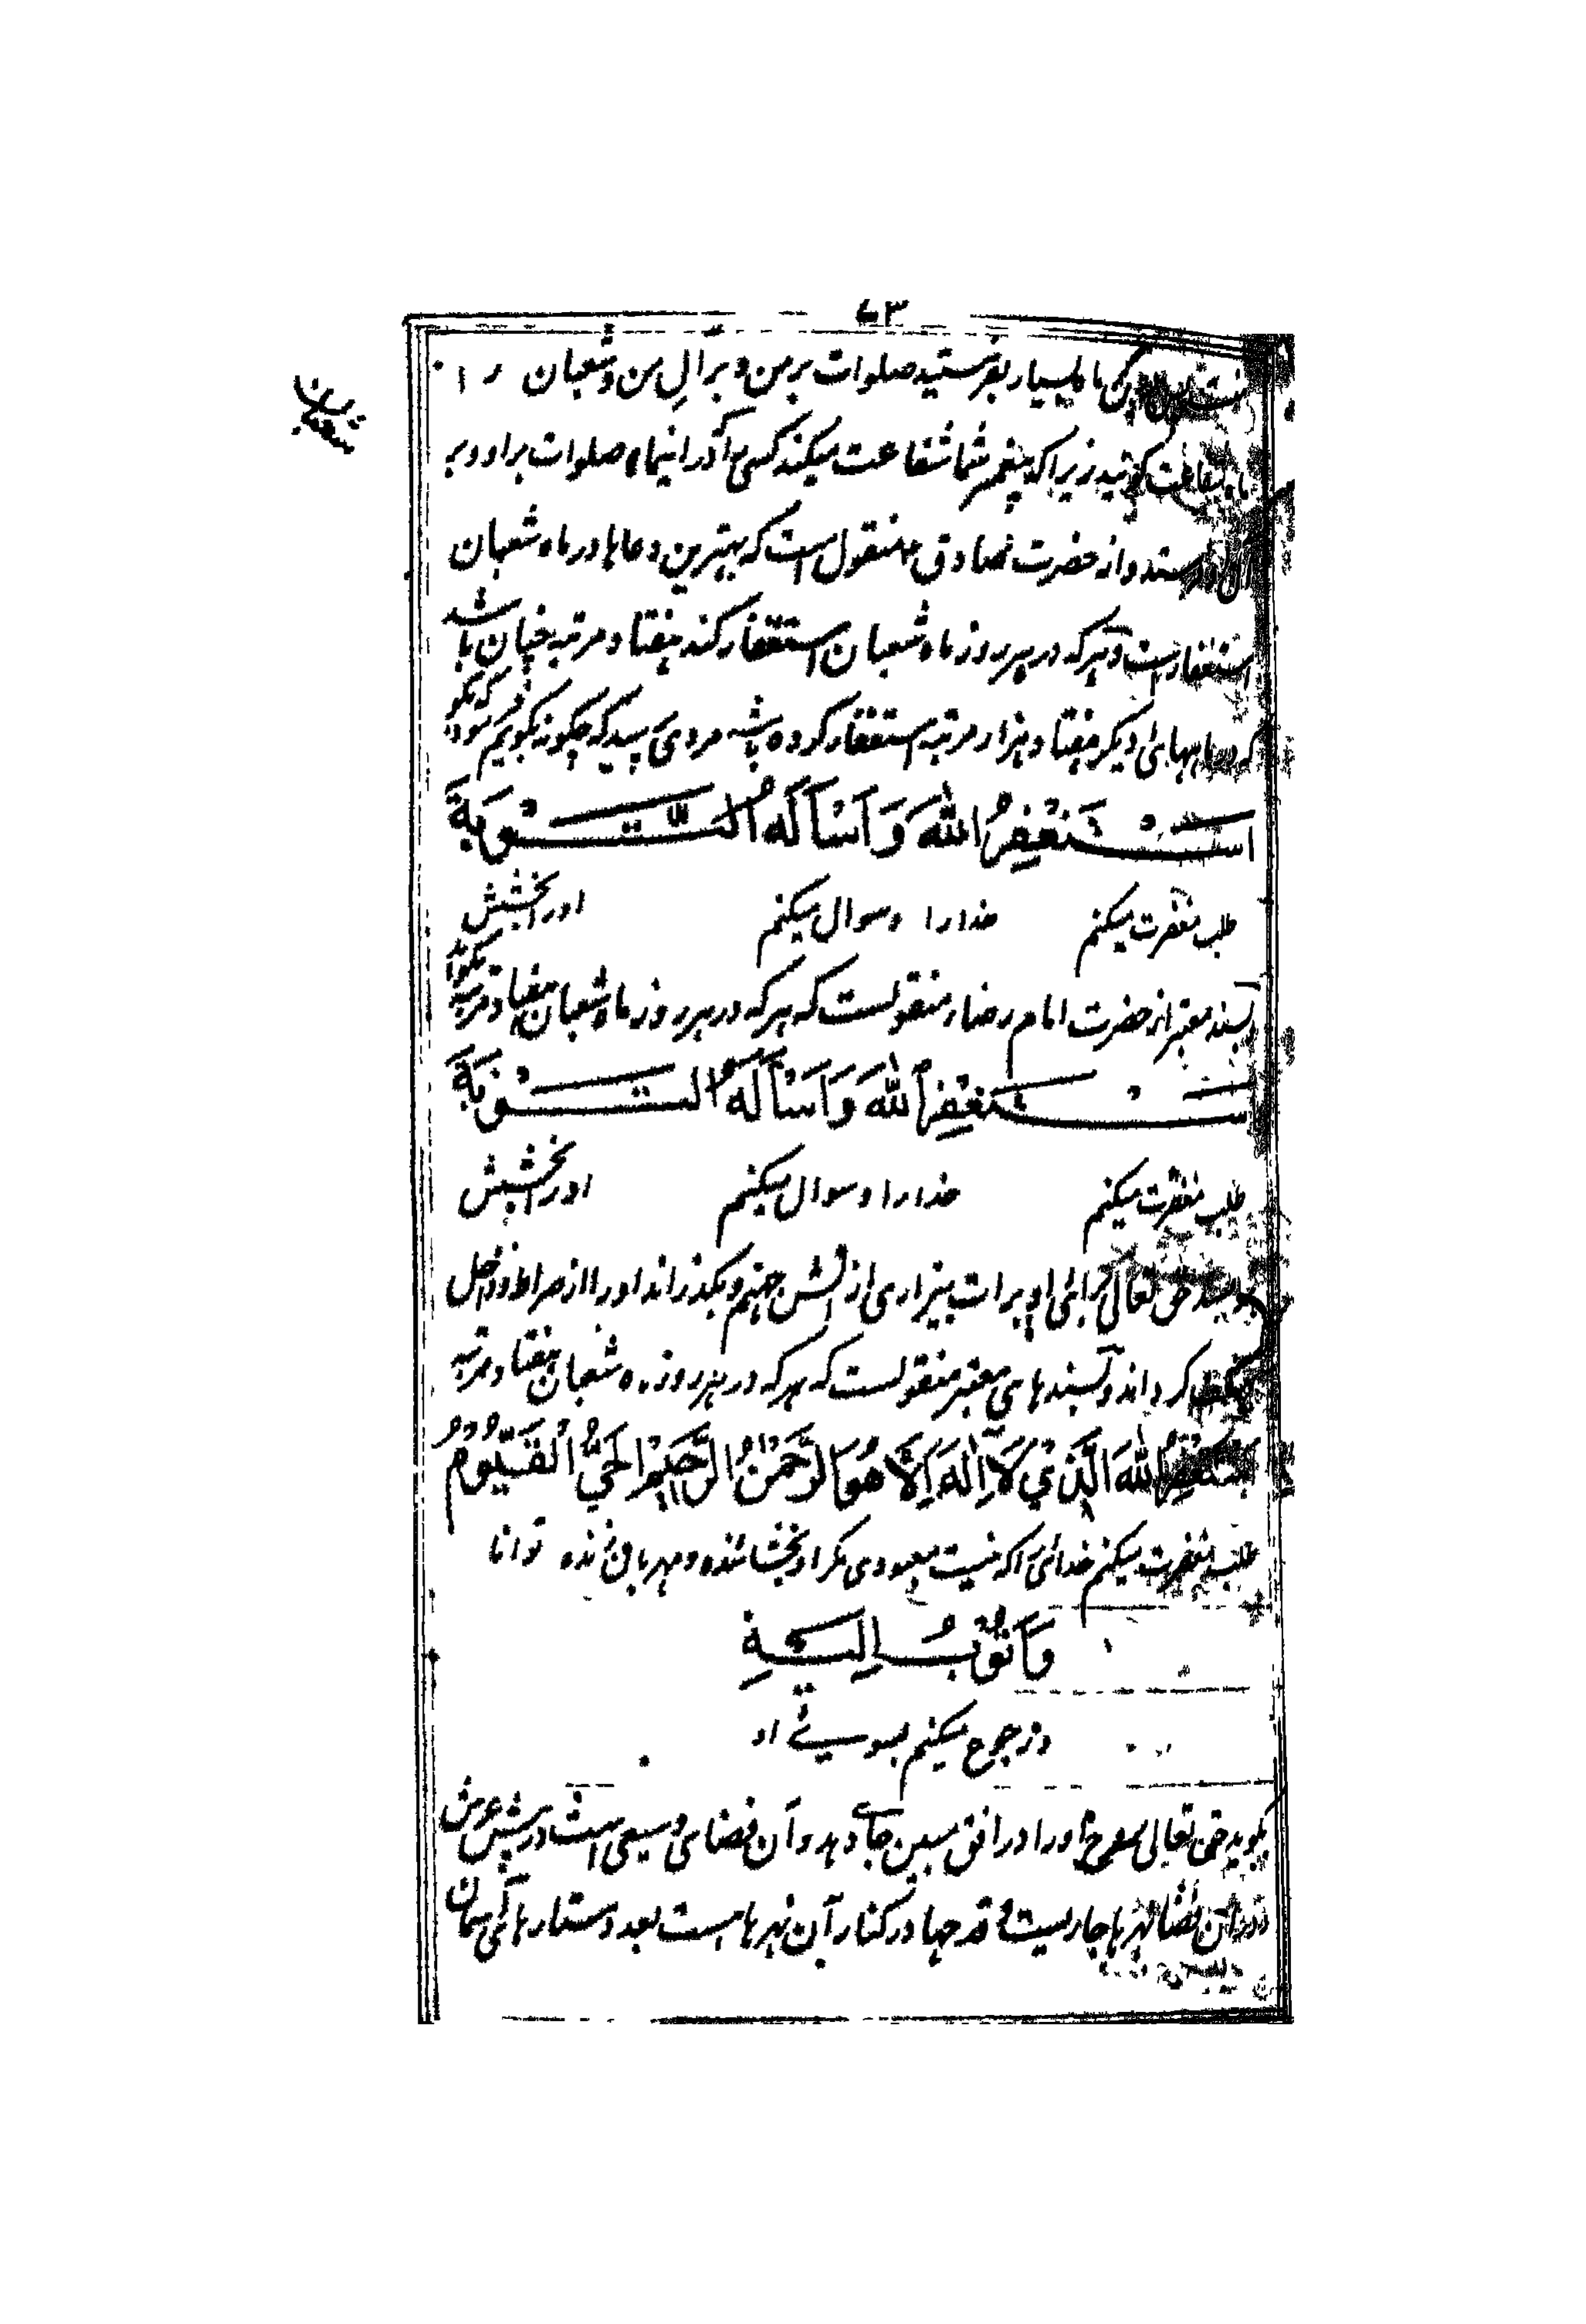 ۷۳
شعبان
بسیار بفرستید صلوات بر من و بر آلِ من و شعبان را
زیرا که پیغمبر شما شفاعت میکند کسی را که در اینماه صلوات بر او و بر
آل او فرستد و از حضرت صادق ع منقول است که بهترین دعاها در ماه شعبان
استغفار است و هر که در هر روز ماه شعبان استغفار کند هفتاد مرتبه چنان باشد
که در ماههای دیگر هفتاد هزار مرتبه استغفار کرده باشد مردی پرسید که چگونه بگویم فرمود که بگو
اَسْتَغْفِرُ اللهَ وَ اَسْاَلُهُ التَّوْبَةَ
طلب مغفرت میکنم خدا را و سوال میکنم او را بخشش
بسند معتبر از حضرت امام رضا منقولست که هر که در هر روز ماه شعبان هفتاد مرتبه بگوید
اَسْتَغْفِرُ اللهَ وَ اَسْاَلُهُ التَّوْبَةَ
طلب مغفرت میکنم خدا را و سوال میکنم او را بخشش
بنویسد حق تعالی برای او برات بیزاری از آتش جهنم و بگذراند او را از صراط و داخل
بهشت گرداند و بسندهای معتبر منقولست که هر که در هر روز ماه شعبان هفتاد مرتبه
اَسْتَغْفِرُ اللهَ الَّذِیْ لَا اِلٰهَ اِلَّا هُوَ الرَّحْمٰنُ الرَّحِیْمُ الْحَیُّ الْقَیُّوْمُ
طلب مغفرت میکنم خدائی را که نیست معبودی مگر او بخشاینده و مهربان زنده توانا
وَ اَتُوْبُ اِلَیْهِ
و رجوع میکنم بسوئے او
بگوید حق تعالی روح او را در افق مبین جای دهد و آن فضای وسیعی است در پیش عرش
و در آن فضا نهرها جاریست و قدحها در کنار آن نهرها هست بعدد ستارهای آسمان